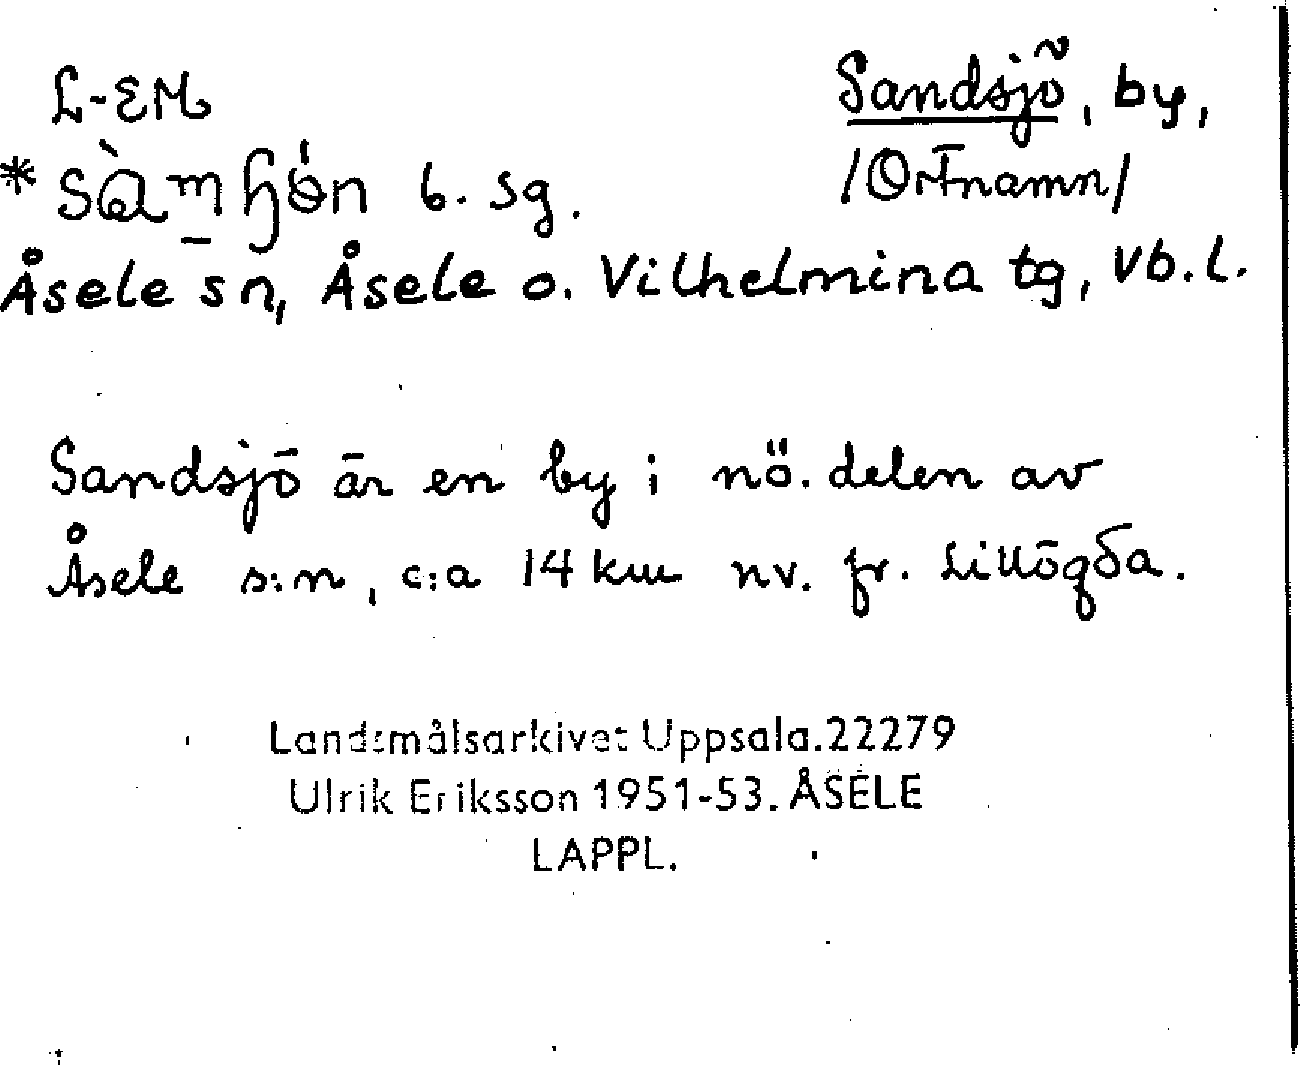 L-EM
Sandsjö, by,
/Ortnamn/
b. sg.
Åsele sn, Åsele o. Vilhelmina tg, Vb.l.
Sandsjö är en by i nö. delen av
Åsele s:n, c:a 14 km nv. fr. Lillögda.
Landsmålsarkivet Uppsala.22279
Ulrik Eriksson 1951-53. ÅSELE
LAPPL.